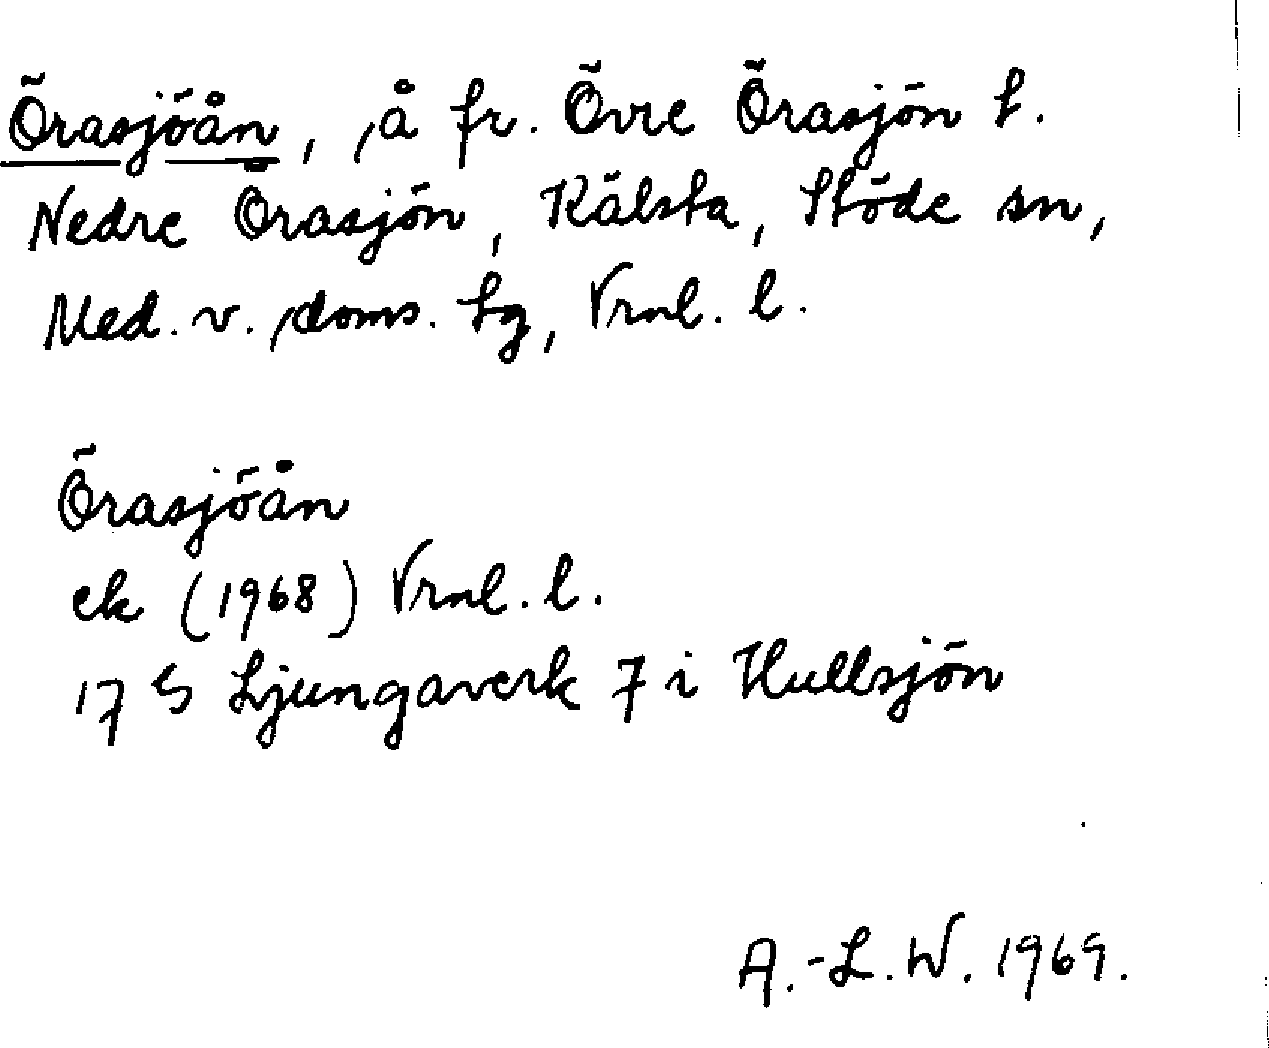 Örasjöån, å fr. Övre Örasjön t.
Nedre Örasjön, Kälsta, Stöde sn,
Med. v. doms. tg, Vrnl. l.
Örasjöån
ek (1968) Vrnl. l.
17 S Ljungaverk 7 i Hullsjön
A.-L. W. 1969.